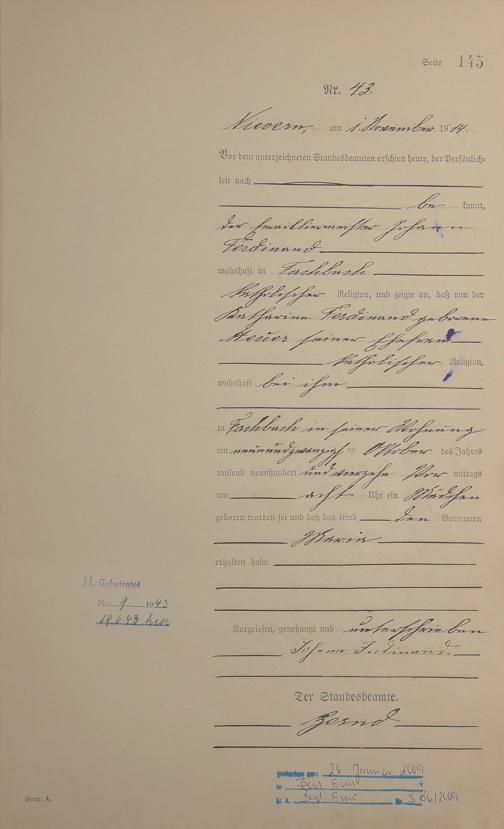 Seite 145
Nr. 43.
Nievern, am 1. November 1914.
Vor dem unterzeichneten Standesbeamten erschien heute, der Persönlich-
keit nach
be kannt,
der Emailliermeister Johann
Ferdinand
wohnhaft in Fachbach
katholischer Religion, und zeigte an, daß von der
Katharina Ferdinand geborene
Heuser seiner Ehefrau
katholischer Religion,
wohnhaft bei ihm
zu Fachbach in seiner Wohnung
am neunundzwanzigsten Oktober des Jahres
tausend neunhundert und vierzehn Vor mittags
um acht Uhr ein Mädchen
geboren worden sei und daß das Kind den Vornamen
Maria
erhalten habe.
H. Geheiratet
Nr. 9 1943
19.6.43 hier
Vorgelesen, genehmigt und unterschrieben
Johann Ferdinand.
Der Standesbeamte.
gestorben am: 26 Januar 2009
in Bad Ems
St. A. Bad Ems Nr. S 06/2009
Form. A.